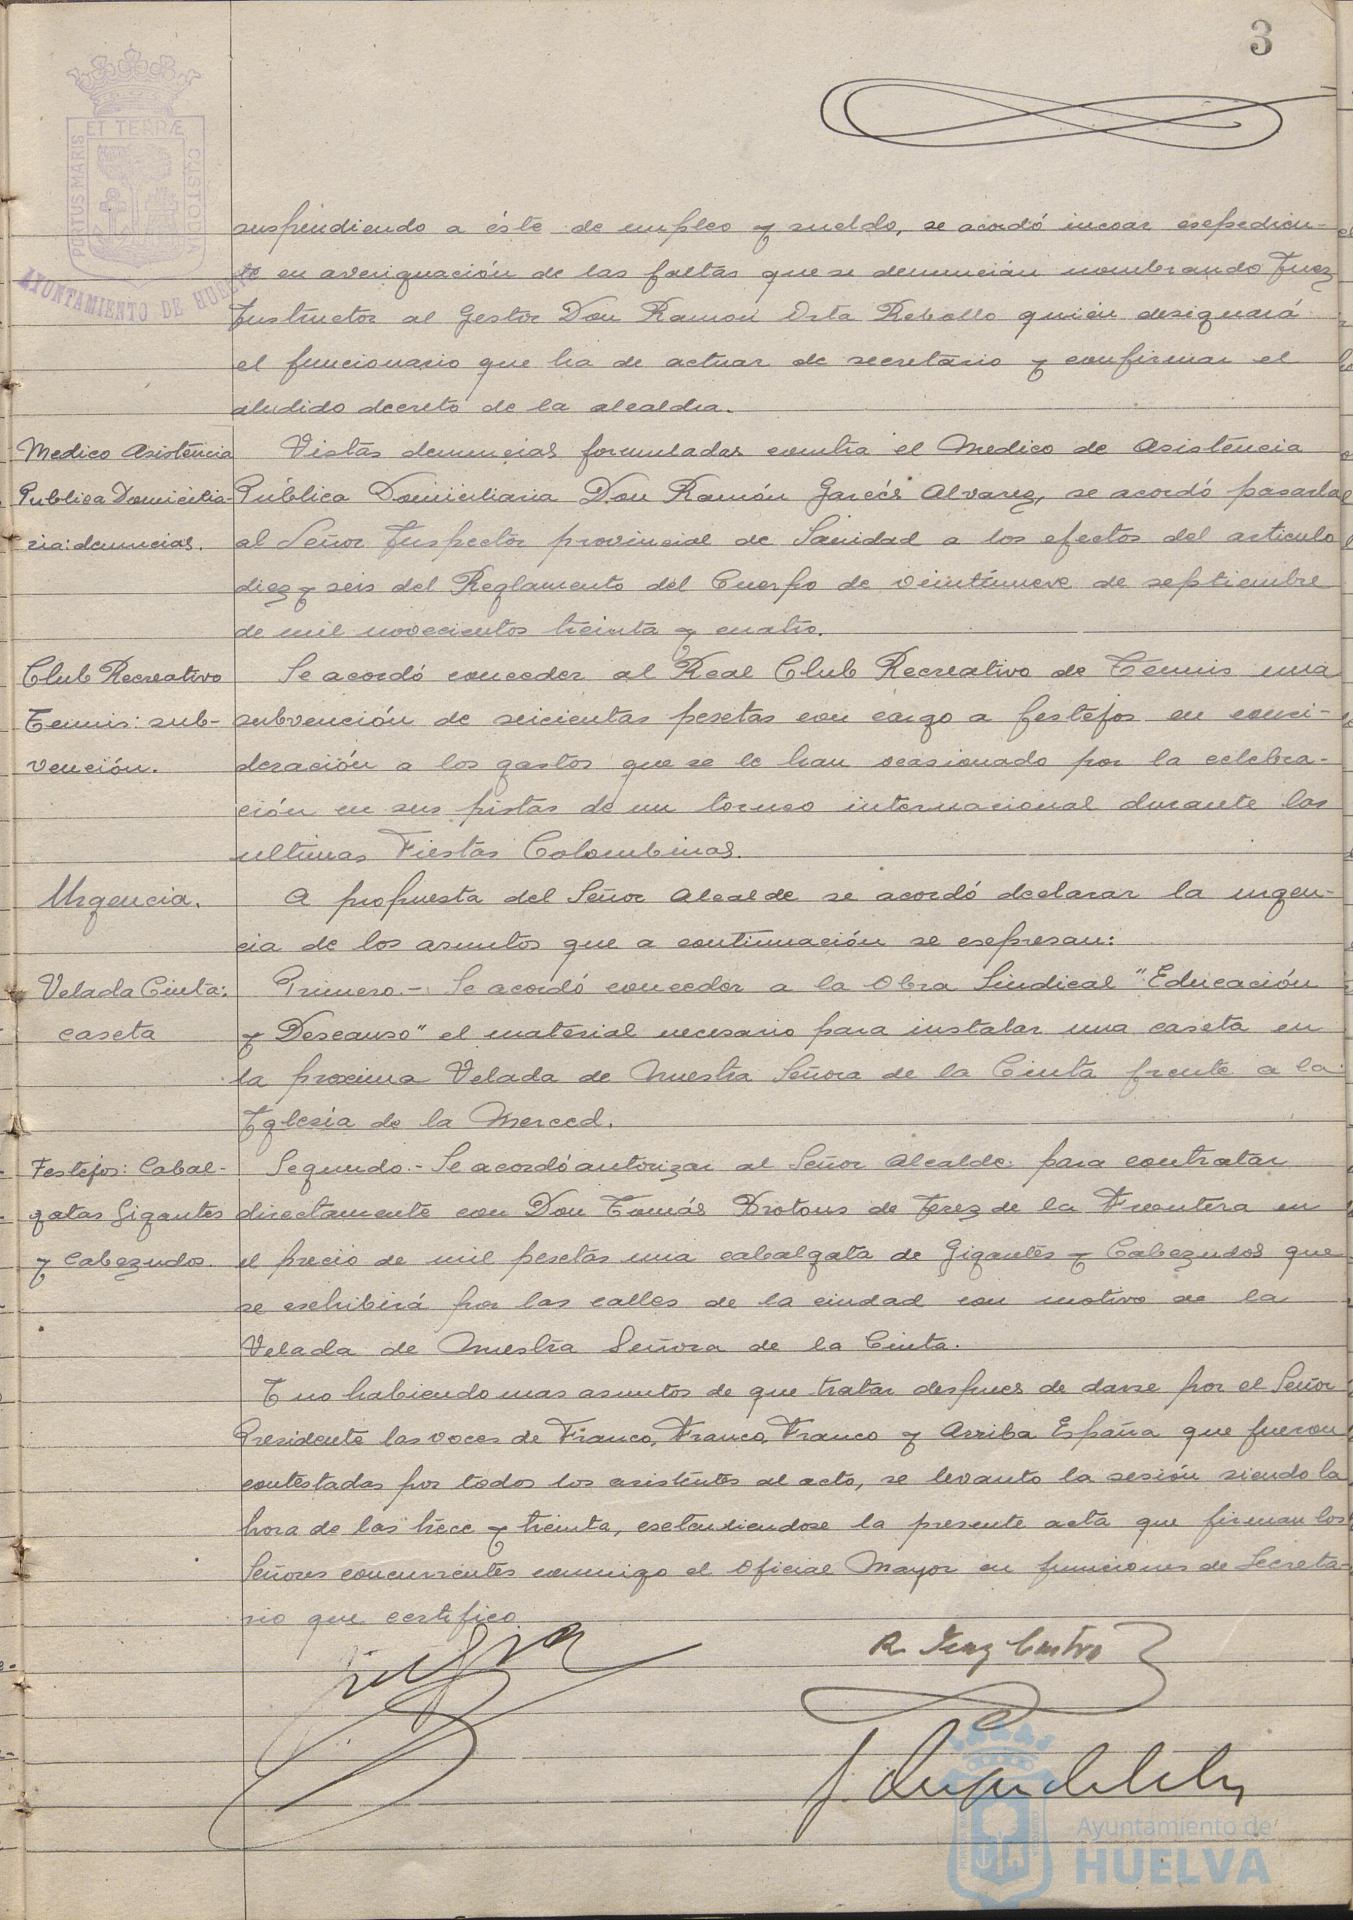 3
ET TERRÆ
PORTUS MARIS
CUSTODIA
AYUNTAMIENTO DE HUELVA
suspendiendo a éste de empleo y sueldo, se acordó incoar esepedien-
te en averiguación de las faltas que se denuncian nombrando Juez
Instructor al Gestor Don Ramon Orta Rebollo quien designará
el funcionario que ha de actuar de secretario y confirmar el
aludido decreto de la alcaldia.
Medico Asistencia
Publica Domicilia-
ria: denuncias.
Vistas denuncias formuladas contra el Medico de Asistencia
Pública Domiciliaria Don Ramón Garcés Alvarez, se acordó pasarla
al Señor Inspector provincial de Sanidad a los efectos del articulo
diez y seis del Reglamento del Cuerpo de veintinueve de septiembre
de mil novecientos treinta y cuatro.
Club Recreativo
Tennis: sub-
vención.
Se acordó conceder al Real Club Recreativo de Tennis una
subvención de seicientas pesetas con cargo a festejos en consi-
deración a los gastos que se le han ocasionado por la celebra-
ción en sus pistas de un torneo internacional durante las
ultimas Fiestas Colombinas.
Urgencia.
A propuesta del Señor Alcalde se acordó declarar la urgen-
cia de los asuntos que a continuación se esepresan:
Velada Cinta:
caseta
Primero.- Se acordó conceder a la Obra Sindical "Educación
y Descanso" el material necesario para instalar una caseta en
la proxima Velada de Nuestra Señora de la Cinta frente a la
Iglesia de la Merced.
Festejos: Cabal-
gatas Gigantes
y Cabezudos.
Segundo.- Se acordó autorizar al Señor Alcalde para contratar
directamente con Don Tomás Brotons de Jerez de la Frontera en
el precio de mil pesetas una cabalgata de Gigantes y Cabezudos que
se esehibirá por las calles de la ciudad con motivo de la
Velada de Nuestra Señora de la Cinta.
Y no habiendo mas asuntos de que tratar despues de darse por el Señor
Presidente las voces de Franco, Franco, Franco y Arriba España que fueron
contestadas por todos los asistentes al acto, se levanto la sesión siendo la
hora de las trece y treinta, esetendiendose la presente acta que firman los
Señores concurrentes conmigo el Oficial Mayor en funciones de Secreta-
rio que certifico
Ayuntamiento de
HUELVA